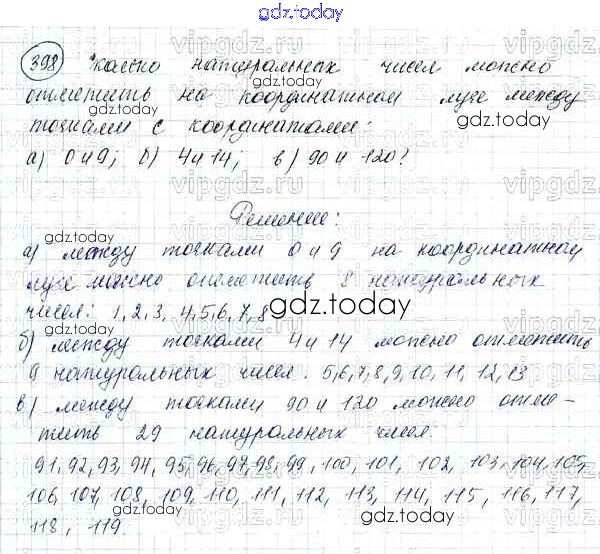 gdz.today
398 Сколько натуральных чисел можно
отметить на координатном луче между
точками с координатами:
а) 0 и 9; б) 4 и 14; в) 90 и 120?
Решение:
а) между точками 0 и 9 на координатном
луче можно отметить 8 натуральных
чисел: 1, 2, 3, 4, 5, 6, 7, 8
б) между точками 4 и 14 можно отметить
9 натуральных чисел: 5, 6, 7, 8, 9, 10, 11, 12, 13
в) между точками 90 и 120 можно отме-
тить 29 натуральных чисел:
91, 92, 93, 94, 95, 96, 97, 98, 99, 100, 101, 102, 103, 104, 105,
106, 107, 108, 109, 110, 111, 112, 113, 114, 115, 116, 117,
118, 119.